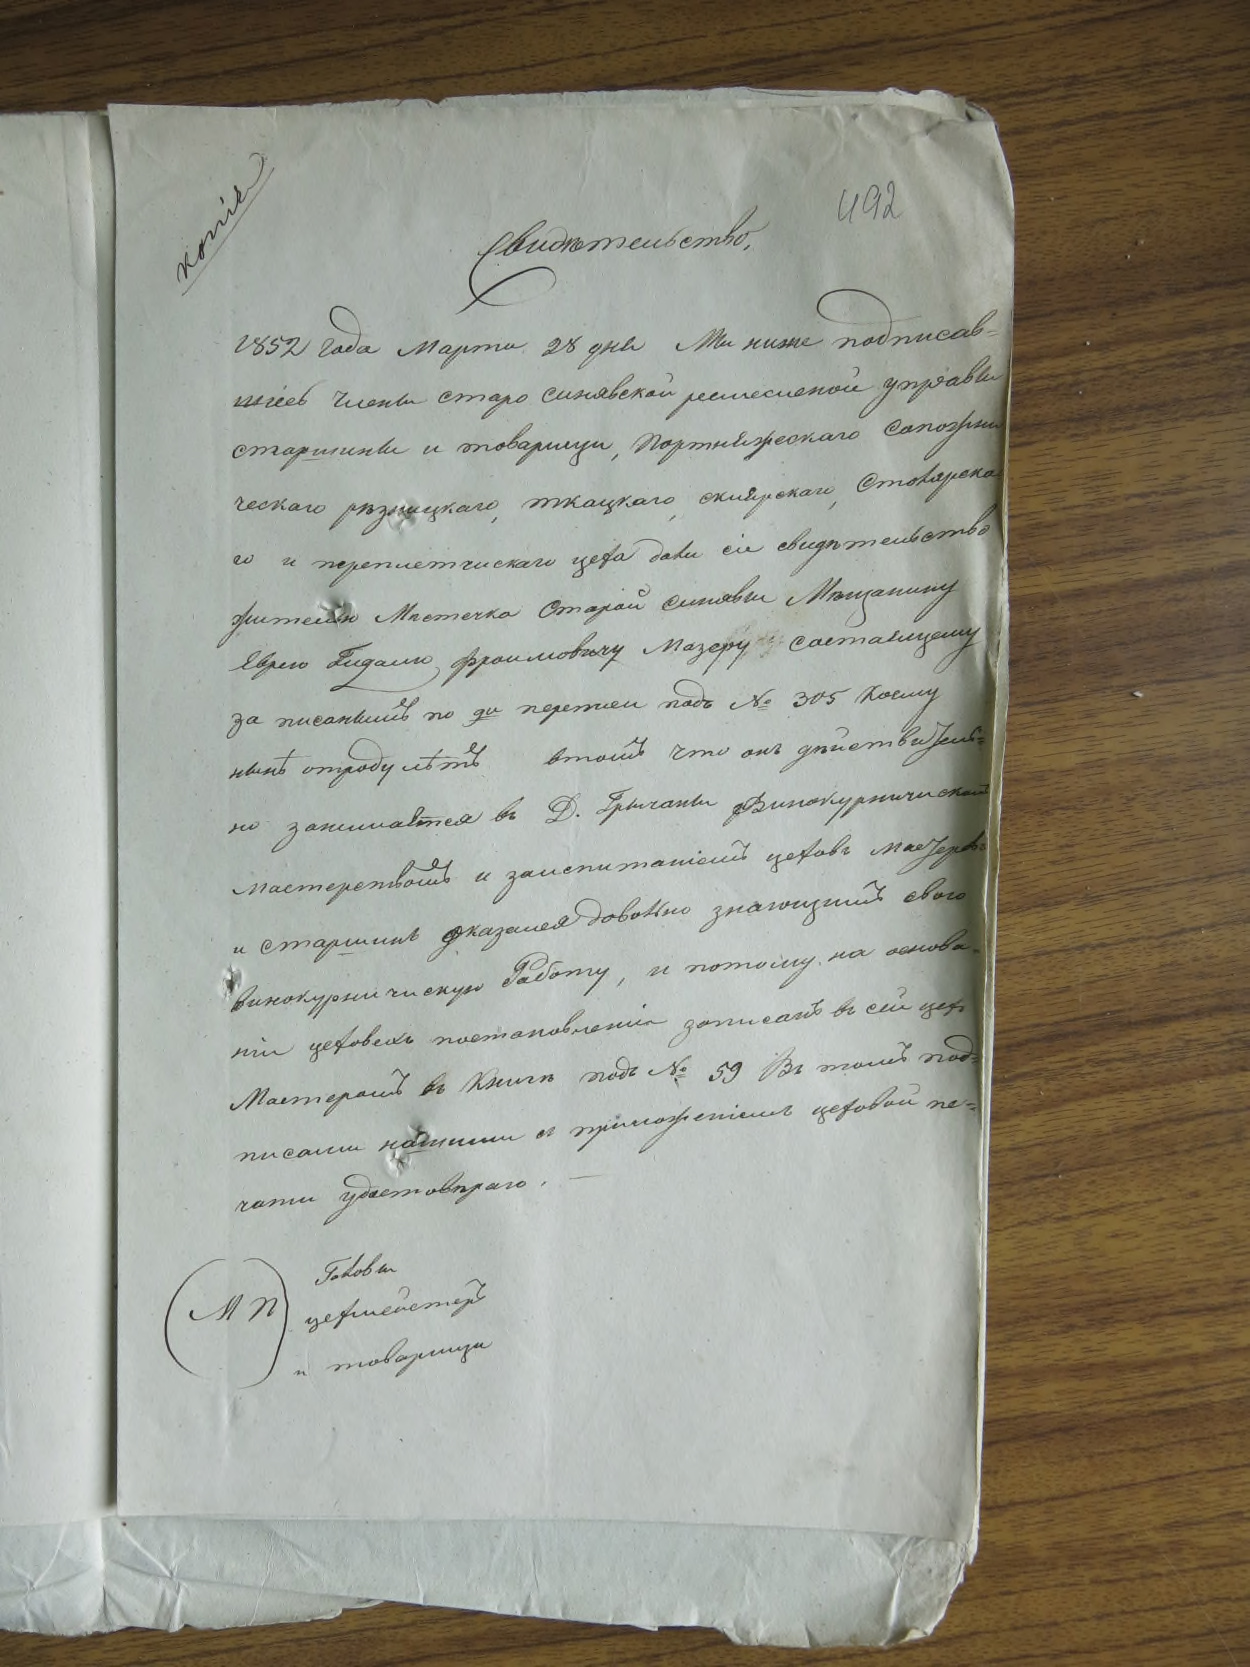 копія
492
Свидѣтельство.
1852 года Марта 28 дня Мы ниже подписав=
шіесь члены старо синявской ремесленой управы
старшины и товарищи, Портняжескаго Сапожни
ческаго рѣзницкаго, ткацкаго, скиярскаго, Столярска
го и переплетчискаго цеха дали сіе свидѣтельство
жителю Мѣстечка Старой синявы Мѣщанину
Еврею Гидалю Фроимовичу Мазеру состаящему
за писанымъ по ди перетеи подъ № 305 Коему
нынѣ отроду лѣтъ втомъ что онъ дѣйствитель=
но занимается въ Д. Грычаны Винокурническимъ
мастерствомъ и заиспитаніемъ цеховъ мастеровъ
и старшинъ оказался довольно знающимъ свою
винокурничискую Работу, и потому на основа=
ніи цеховехъ постановленія записанъ въ сей цехъ
Мастеромъ въ Книги подъ № 59 Въ томъ под=
писами нашими съ приложеніемъ цеховой пе=
чати удостовѣраю. —
Головы
(М П) цехмейстеръ
и товарищи